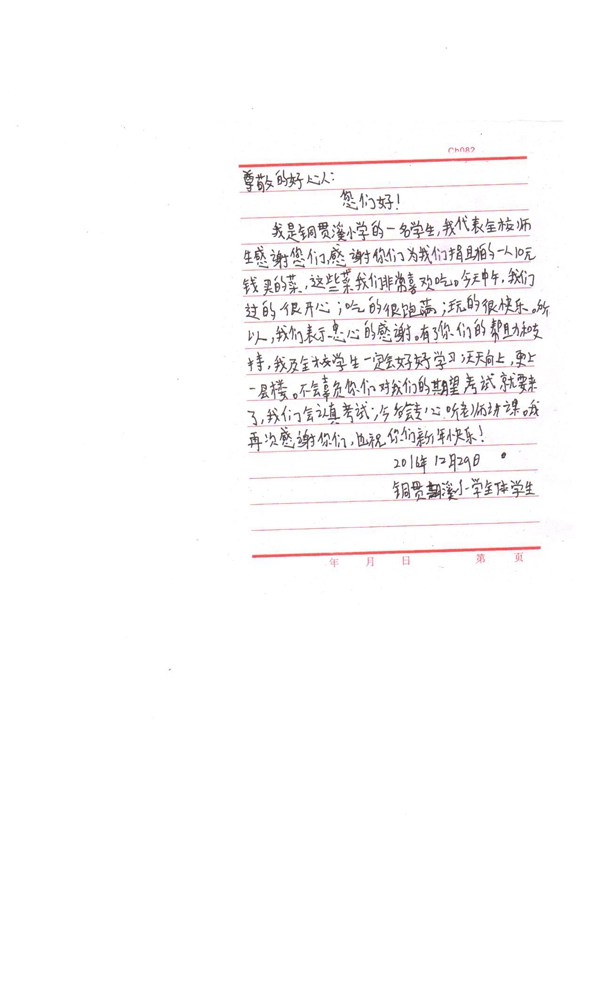 尊敬的好心人:
您们好!
我是铜贯溪小学的一名学生,我代表全校师
生感谢您们,感谢你们为我们捐的一人10元
钱买的菜,这些菜我们非常喜欢吃。今天中午,我们
过的很开心;吃的很饱满;玩的很快乐。所
以,我们表示忠心的感谢。有了你们的帮助和支
持,我及全校学生一定会好好学习,天天向上,更上
一层楼。不会辜负你们对我们的期望考试就要来
了,我们会认真考试;今后会专心听老师讲课。我
再次感谢你们,也祝你们新年快乐!
2016年12月29日
铜贯溪小学全体学生
年 月 日 第 页